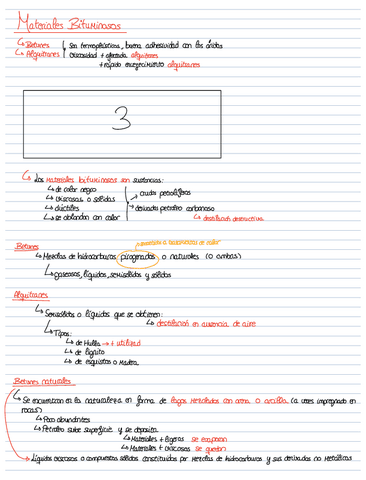 Materiales Bituminosos
Betunes Son termoplásticos, buena adhesividad con los áridos
Alquitranes Viscosidad + afectada alquitranes
+ rápido envejecimiento alquitranes
3
Los materiales bituminosos son sustancias:
de color negro
viscosas o sólidas
dúctiles
se ablandan con calor
crudos petrolíferos
derivados petróleo carbonoso
destilación destructiva
sometidos a tratamientos de calor
Betunes
Mezclas de hidrocarburos pirogenados o naturales (o ambas)
gaseosos, líquidos, semisólidos y sólidos
Alquitranes
Semisólidos o líquidos que se obtienen:
destilación en ausencia de aire
Tipos:
de Hulla → + utilizad
de lignito
de esquistos o madera
Betunes naturales
Se encuentran en la naturaleza en forma de lagos mezclados con arena o arcilla (a veces impregnado en
rocas)
Poco abundantes
Petróleo sube superficie y se deposita
Materiales + ligeros se evaporan
Materiales + viscosos se quedan
Líquidos viscosos o compuestos sólidos constituidos por mezclas de hidrocarburos y sus derivados no metálicos